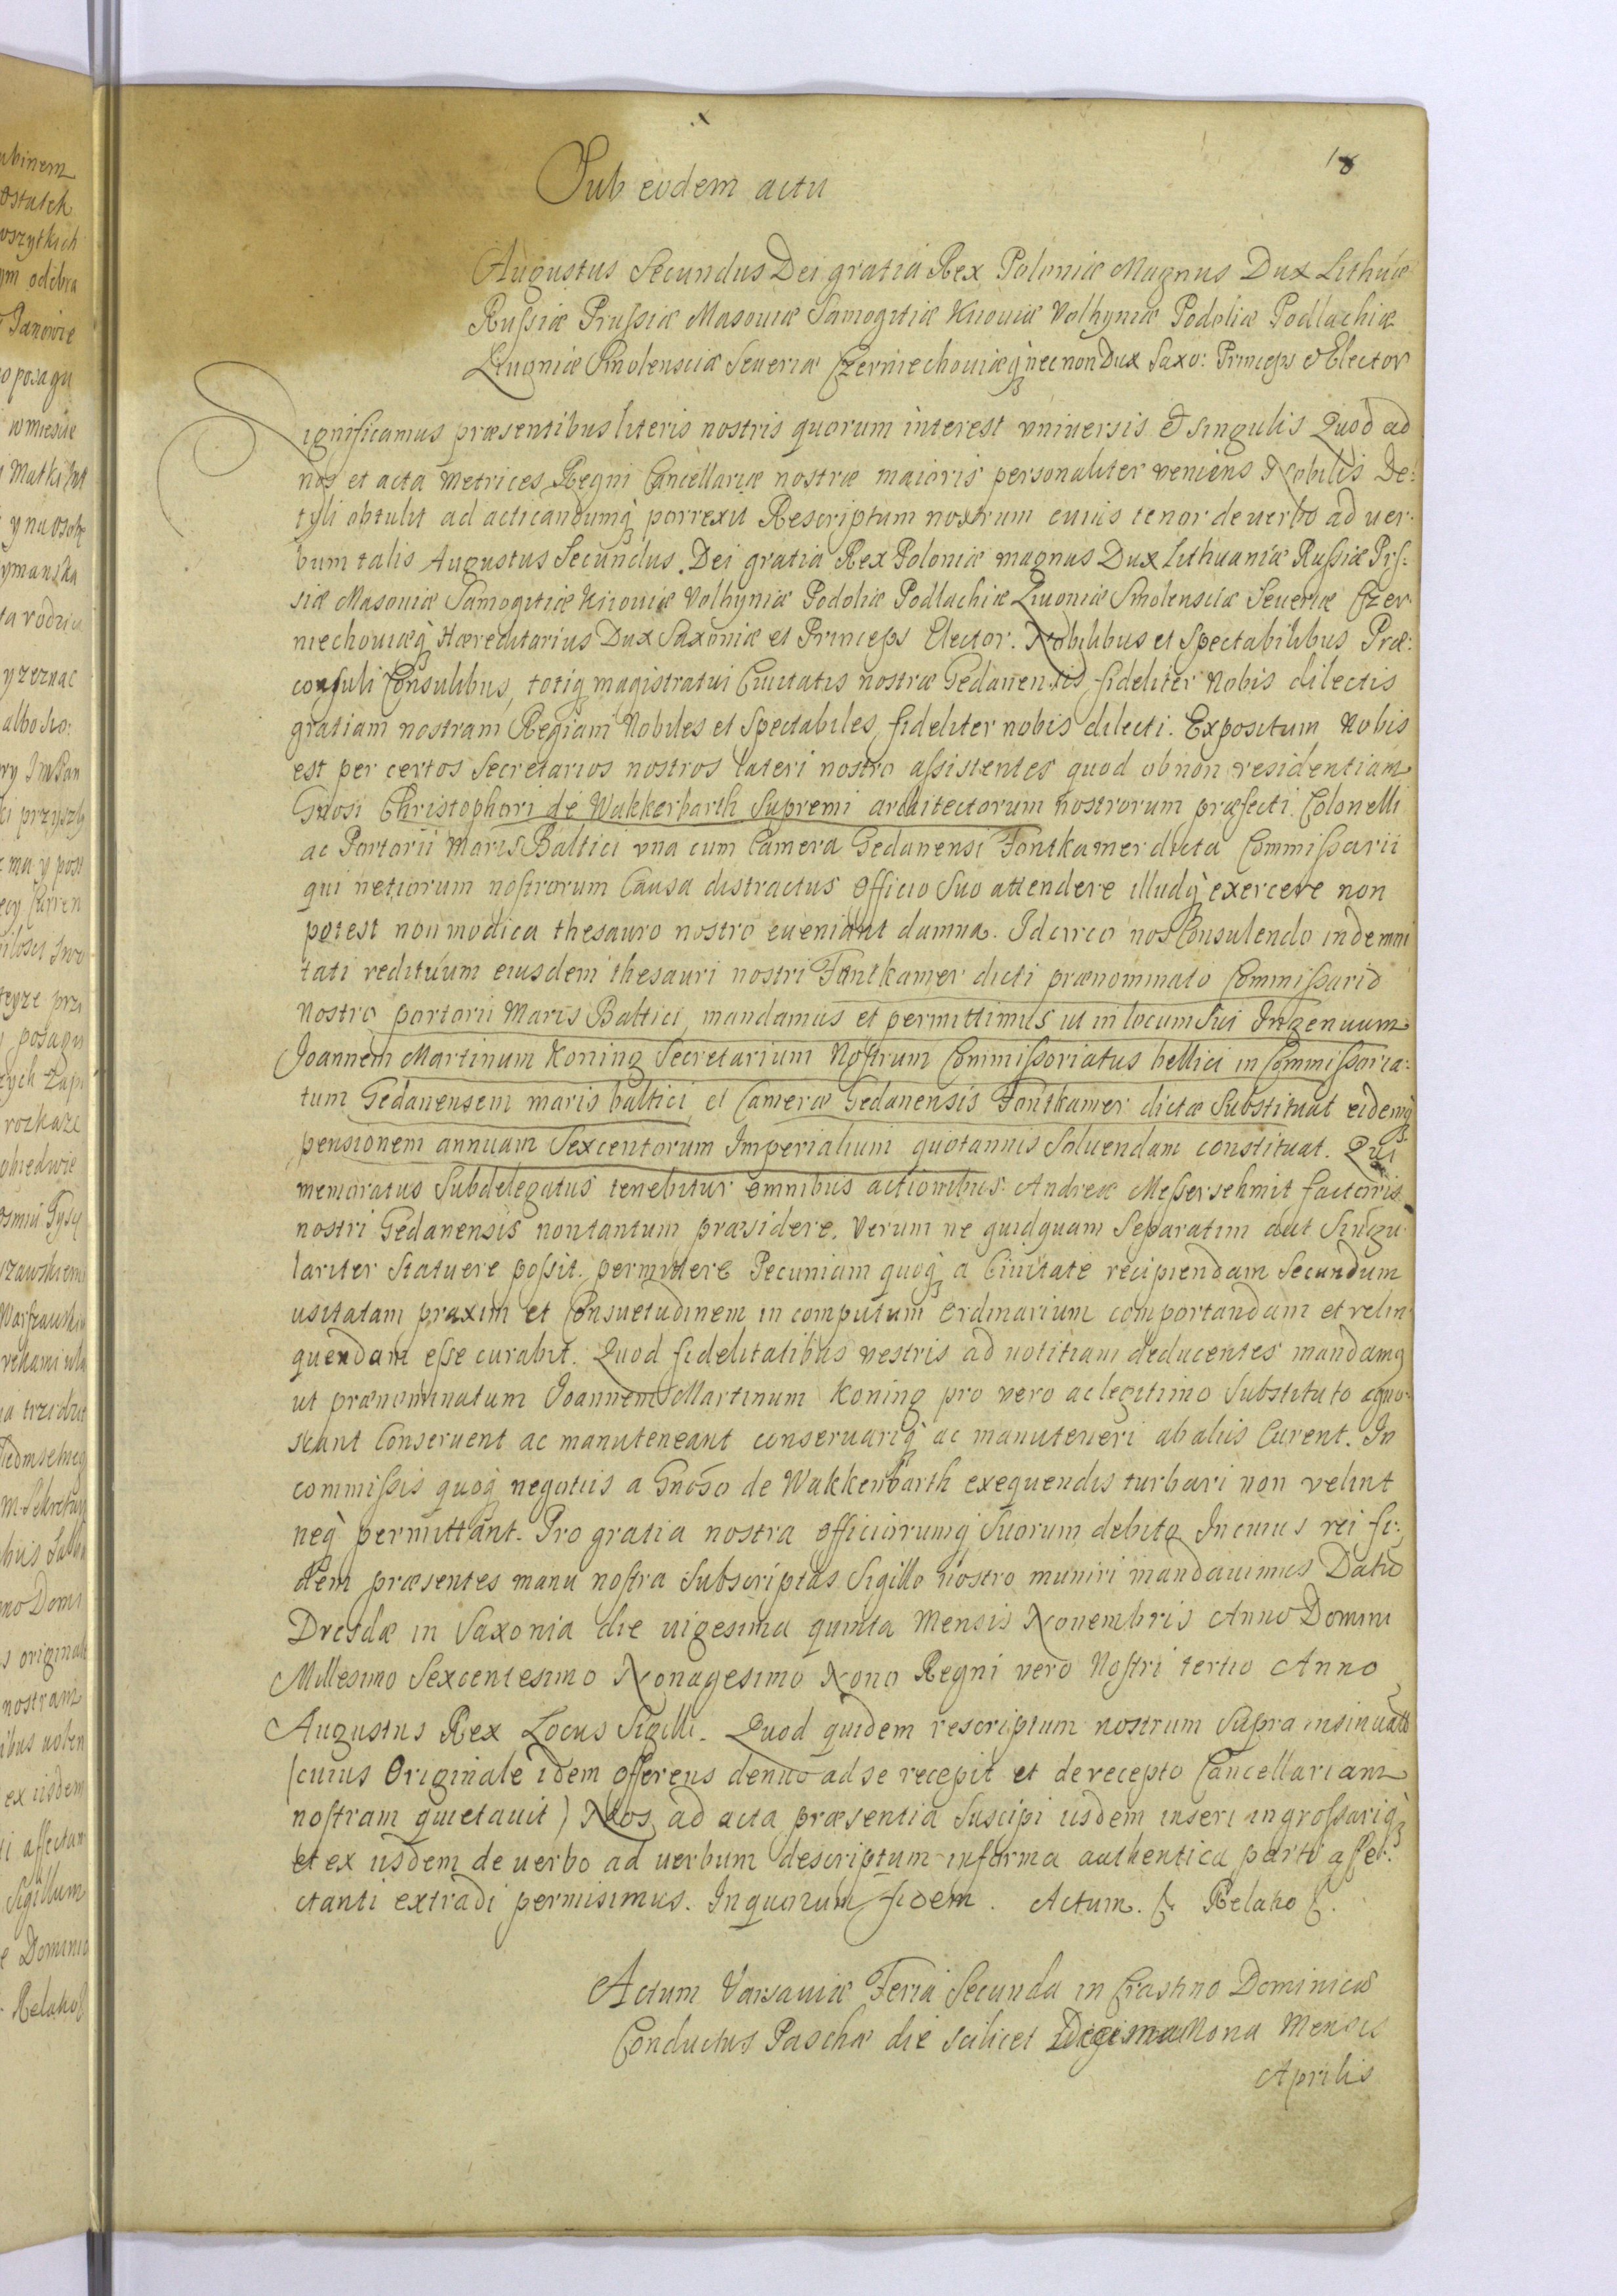 18
Sub eodem actu
Augustus Secundus Dei gratia Rex Poloniæ Magnus Dux Lithuæ
Russiæ Prussiæ Masouiæ Samogitiæ Kiiouiæ Volhyniæ Podoliæ Podlachiæ
Liuoniæ Smolensciæ Seueriæ Czerniechouiæq̀ necnon Dux Saxo: Princeps & Elector
Significamus præsentibus literis nostris quorum interest vniuersis et singulis Quod ad
nos et acta Metrices Regni Cancellariæ nostræ maioris personaliter veniens Nobilis De:
tyli obtulit ad acticandumq̀ porrexit Rescriptum nostrum cuius tenor de uerbo ad uer-
bum talis Augustus Secundus Dei gratia Rex Poloniæ magnus Dux Lithuaniæ Russiæ Prs-
siæ Masouiæ Samogitiæ Kiiouiæ Volhyniæ Podoliæ Podlachiæ Liuoniæ Smolensciæ Seueriæ Czer-
niechouiæq̀ Hæreditarius Dux Saxoniæ et Princeps Elector. Nobilibus et Spectabilibus Præ:
consuli Consulibus, totiq magistratui Ciuitatis nostræ Gedanensis fideliter Nobis dilectis
gratiam nostram Regiam Nobiles et Spectabiles, fideliter nobis dilecti. Expositum Nobis
est per certos Secretarios nostros lateri nostro assistentes quod ob non residentiam
Gnosi Christophori de Wakkerbarth Supremi architectorum nostrorum præfecti Colonelli
ac Portorii Maris Baltici vna cum Camera Gedanensi Fontkamer dicta Commissarii
qui netiorum nostrorum Causa distractus officio suo attendere illudq̀ exercere non
potest non modica thesauro nostro eueniant damna. Idcirco nos Consulendo indemni
tati redituum eiusdem thesauri nostri Fontkamer dicti prænominato Commissario
Nostro portorii Maris Baltici, mandamus et permittimus ut in locum sui Ingenuum
Joannem Martinum Koning Secretarium Nostrum Commissoriatus bellici in Commissaria:
tum Gedanensem maris baltici, et Cameræ Gedanensis Fontkamer dictæ Substituat eidemq̀
pensionem annuam Sexcentorum Imperialium quotannis Soluendam constituat. Qui
memoratus Subdelegatus tenebitur omnibus actionibus Andreæ Messerschmit factoris
nostri Gedanensis non tantum præsidere. Verum ne quidquam Separatim aut Singu-
lariter Statuere possit. permittere Pecuniam quoq̀ a Ciuitate recipiendam Secundum
usitatam praxim et Consuetudinem in computum ordinarium comportandam et relin-
quendam esse curabit. Quod fidelitatibus vestris ad notitiam deducentes mandamq
ut prænominatum Joannem Martinum Koning pro vero ac legitimo Substituto agno-
scant Conseruent ac manuteneant conseruariq̀ ac manuteneri ab aliis Curent. In
commissis quoq̀ negotiis a Gnoso de Wakkerbarth exequendis turbari non velint
neq̀ permittant. Pro gratia nostra officiorumq̀ Suorum debito In cuius rei fi-
dem præsentes manu nostra Subscriptas Sigillo nostro muniri mandauimus Datum
Dresdæ in Saxonia die uigesima quinta Mensis Nouembris Anno Domini
Millesimo Sexcentesimo Nonagesimo Nono Regni vero Nostri tertio Anno
Augustus Rex Locus Sigilli. Quod quidem rescriptum nostrum Supra insinuatū
(cuius Originale idem offerens denuo ad se recepit et de recepto Cancellariam
nostram quietauit) Nos ad acta præsentia Suscipi iisdem inseri ingrossariq̀
et ex iisdem de uerbo ad uerbum descriptum in forma authentica parti affe-
ctanti extradi permisimus. In quorum fidem. Actum. &. Relatio &.
Actum Varsauiæ Feria Secunda in Crastino Dominicæ
Conductus Paschæ die scilicet Nona Mensis
Aprilis